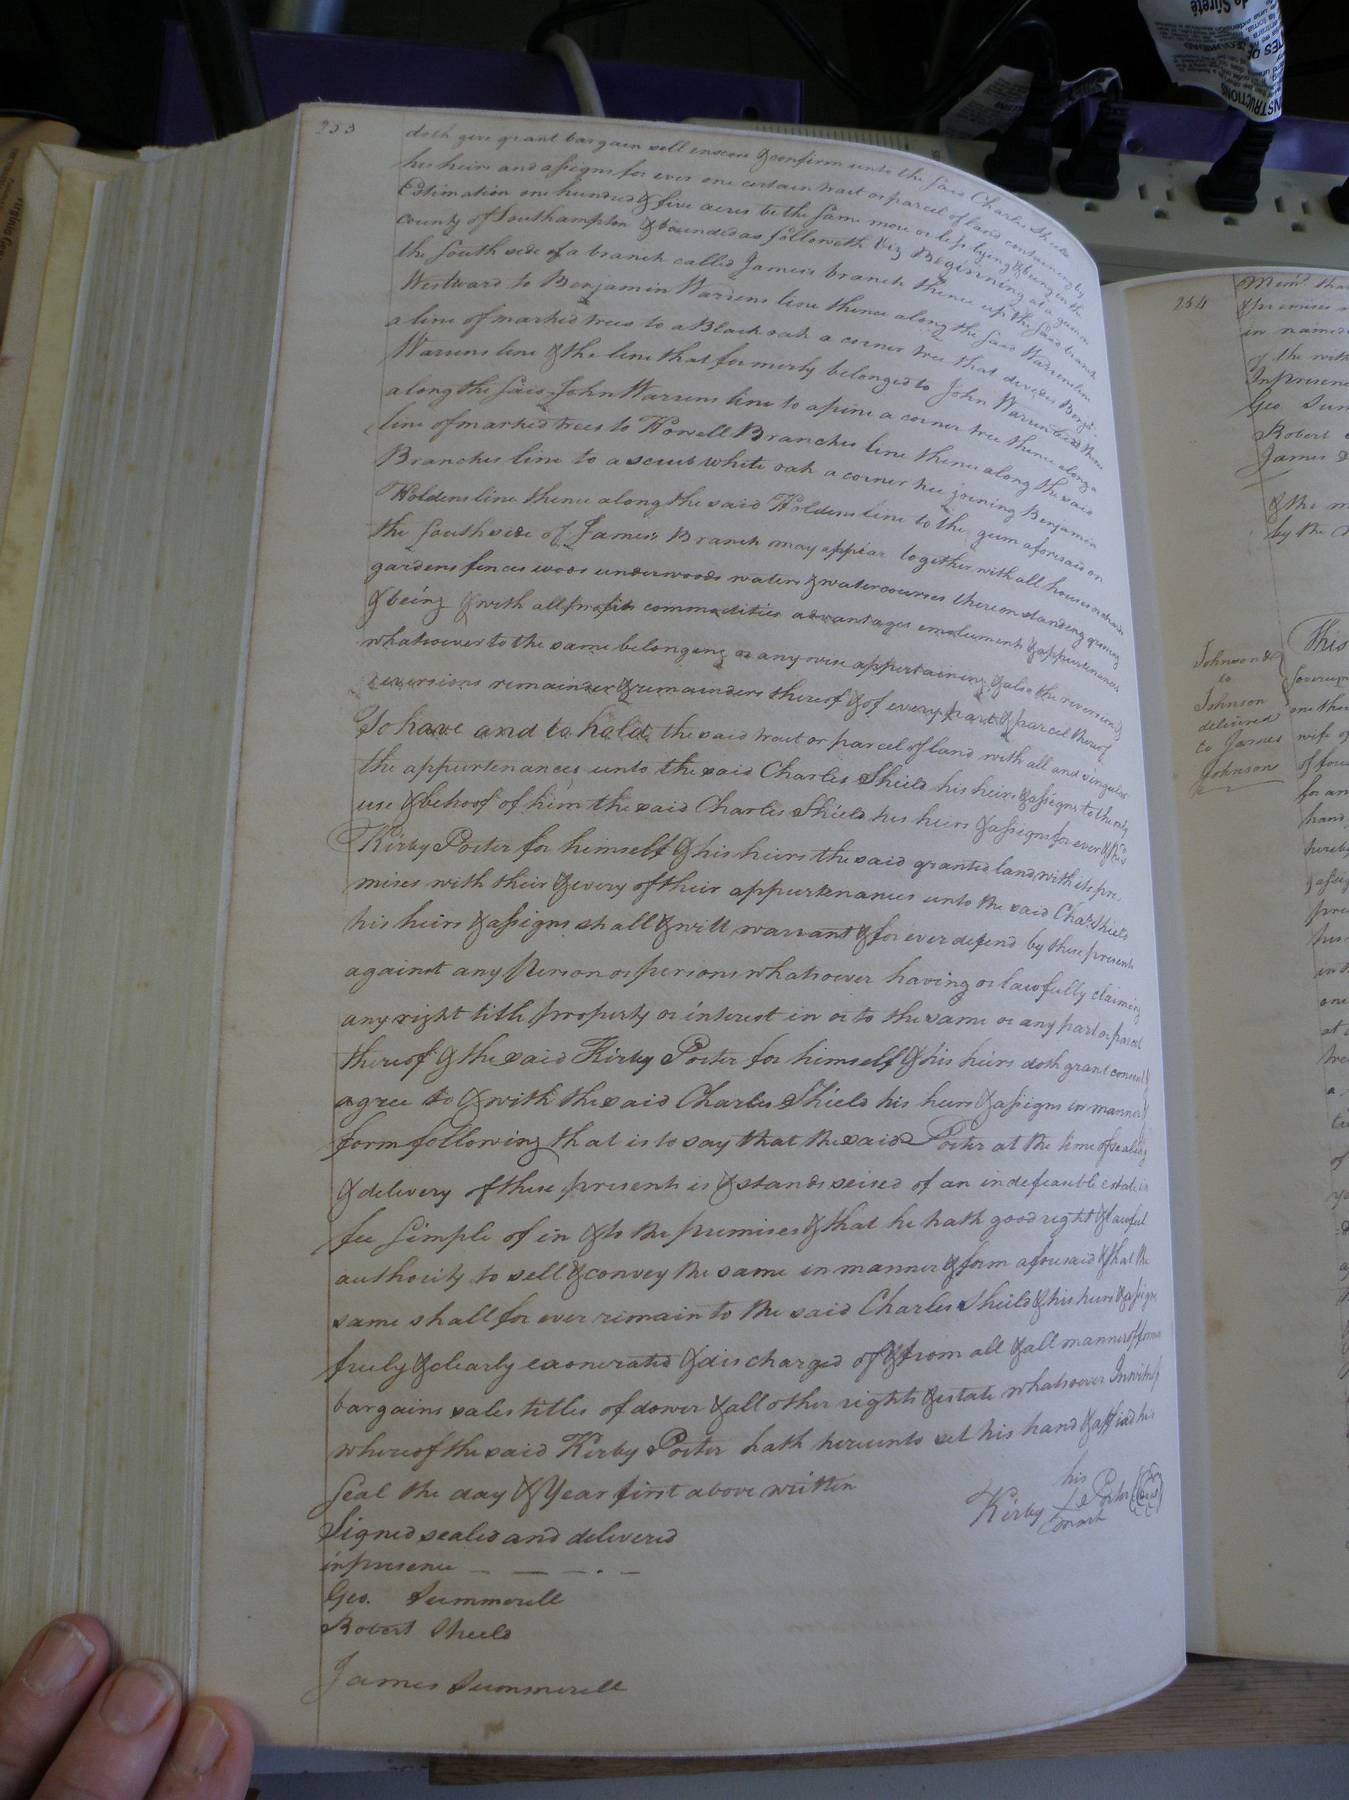 253
doth give grant bargain sell enseoe & confirm unto the said Charles Sheild
his heirs and assigns for ever one certain tract or parcel of land containing by
Estimation one hundred & five acres be the same more or less lying & being in the
County of Southampton & bounded as followeth Viz Beginning at a gum on
the South side of a branch called James's branch thence up the said branch
Westward to Benjamin Warrens line thence along the said Warrens line
a line of marked trees to a Black oak a corner tree that devides Benja.
Warrens line & the line that formerly belonged to John Warren thence
along the said John Warrens line to a pine a corner tree thence along a
line of marked trees to Howell Branches line thence along the said
Branches line to a scrub white oak a corner tree joining Benjamin
Holdens line thence along the said Holdens line to the gum aforesaid on
the South side of James's Branch may appear together with all houses orchards
gardens fences woods underwoods waters & watercourses thereon standing growing
& being & with all profits commodities advantages emolument & appurtenances
whatsoever to the same belonging or any wise appertaining & also the reversion &
reversions remainder & remainders thereof & of every part & parcel thereof
To have and to hold the said tract or parcel of land with all and singular
the appurtenances unto the said Charles Sheild his heirs & assigns to the only
use & behoof of him the said Charles Shield his heirs & assigns for ever & the sd
Kirby Porter for himself & his heirs the said granted land with its pre
mises with their & every of their appurtenances unto the said Chas. Shield
his heirs & assigns shall & will warrant & for ever defend by these presents
against any person or persons whatsoever having or lawfully claiming
any right title property or interest in or to the same or any part or parcel
thereof & the said Kirby Porter for himself & his heirs doth grant convent
agree to & with the said Charles Shield his heirs & assigns in manner &
form following that is to say that the said Porter at the time of sealing
& delivery of these presents is & stands seised of an indefeasible estate in
fee simple of in & to the premises & that he hath good right & lawful
authority to sell & convey the same in manner & form aforesaid & that the
same shall for ever remain to the said Charles Sheild & his heirs & assigns
freely & clearly exonerated & discharged of & from all & all manner of former
bargains sales titles of dower & all other rights & estate whatsoever In witness
whereof the said Kirby Porter hath hereunto set his hand & affixed his
Seal the day & Year first above written
his
Kirby Porter (Seal)
mark
Signed sealed and delivered
in presence
Geo. Summerell
Robert Sheild
James Summerell
254
Mem'd. that
premises
in named
of the with
In presence
Geo Sum
Robert
James S
& the m
by the C
Johnson &
to
Johnson
delivered
to James
Johnson
This
one thou
wife of
of four
for an
hand
hereby